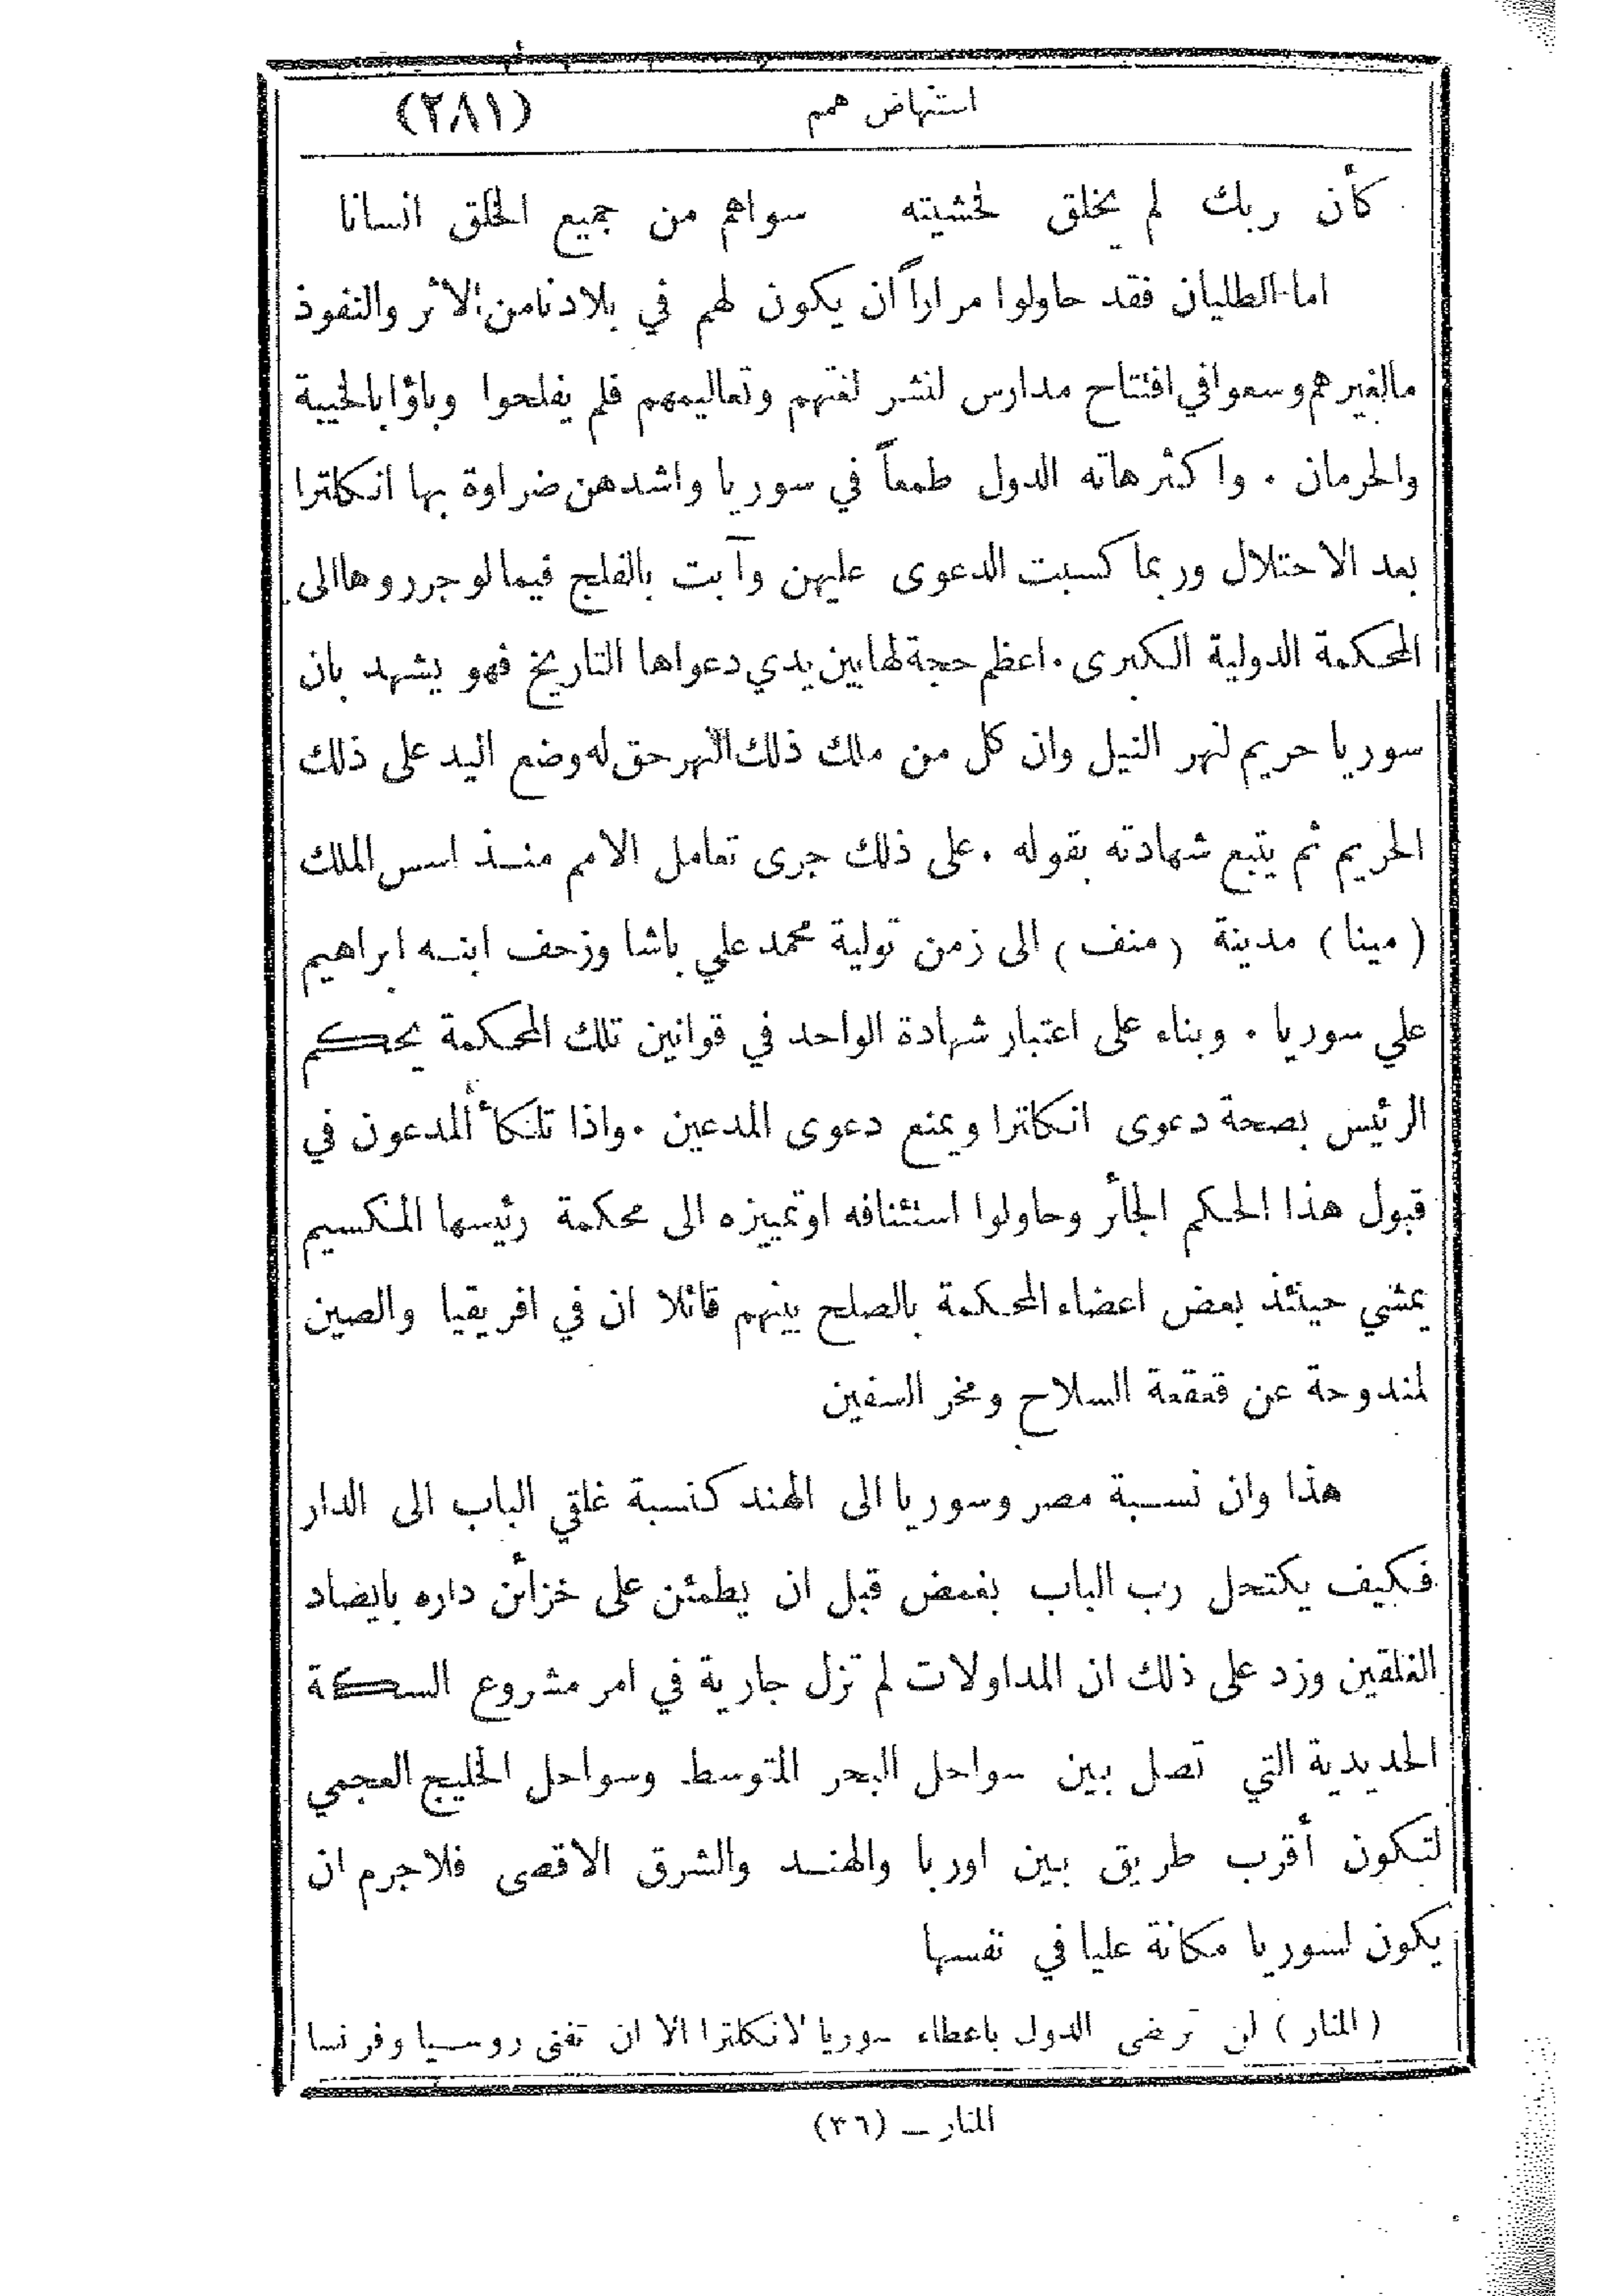 استنهاض همم (٢٨١)
كأن ربك لم يخلق لخشيته سواهم من جميع الخلق انسانا
اما الطليان فقد حاولوا مراراً أن يكون لهم في بلادنا من الاثر والنفوذ
ما لغيرهم وسعوا في افتتاح مدارس لنشر لغتهم وتعاليمهم فلم يفلحوا وباؤا بالخيبة
والحرمان . واكثر هاته الدول طمعاً في سوريا واشدهن ضراوة بها انكلترا
بعد الاحتلال وربما كسبت الدعوى عليهن وآبت بالفلج فيما لو جرروها الى
المحكمة الدولية الكبرى . اعظم حجة لها بين يدي دعواها التاريخ فهو يشهد بان
سوريا حريم لنهر النيل وان كل من ملك ذلك النهر حق له وضع اليد على ذلك
الحريم ثم يتبع شهادته بقوله . على ذلك جرى تعامل الامم منذ اسس الملك
( مينا ) مدينة ( منف ) الى زمن تولية محمد علي باشا وزحف ابنه ابراهيم
علي سوريا . وبناء على اعتبار شهادة الواحد في قوانين تلك المحكمة يحكم
الرئيس بصحة دعوى انكلترا ويمنع دعوى المدعين . واذا تلكأ المدعون في
قبول هذا الحكم الجائر وحاولوا استئنافه او تمييزه الى محكمة رئيسها المنكسيم
يمشي حينئذ بعض اعضاء المحكمة بالصلح بينهم قائلا ان في افريقيا والصين
لمندوحة عن قعقعة السلاح ومخر السفين
هذا وان نسبة مصر وسوريا الى الهند كنسبة غلقي الباب الى الدار
فكيف يكتحل رب الباب بغمض قبل ان يطمئن على خزائن داره بايصاد
الغلقين وزد على ذلك ان المداولات لم تزل جارية في امر مشروع السكة
الحديدية التي تصل بين سواحل البحر المتوسط وسواحل الخليج العجمي
لتكون أقرب طريق بين اوربا والهند والشرق الاقصى فلا جرم ان
يكون لسوريا مكانة عليا في نفسها
( المنار ) لن ترضى الدول باعطاء سوريا لانكلترا الا ان تفنى روسيا وفرنسا
المنار ــ (٣٦)